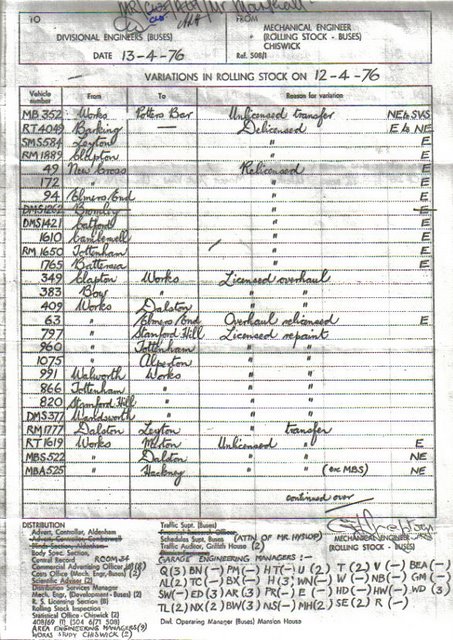 TO
FROM
DIVISIONAL ENGINEERS (BUSES)
MECHANICAL ENGINEER
(ROLLING STOCK - BUSES)
CHISWICK
DATE 13-4-76
Ref. 508/1
VARIATIONS IN ROLLING STOCK ON 12-4-76
Vehicle number From To Reason for variation
MB 352 Works Potters Bar Unlicensed transfer NE to SWS
RT4049 Barking — Delicensed E to NE
SMS584 Leyton " E
RM1889 Clapton " E
49 New Cross Relicensed E
172 " " E
94 Elmers End " E
DMS1262 Bromley " E
DMS1421 Catford " E
1610 Camberwell " E
RM1650 Tottenham " E
1765 Battersea " E
349 Clapton Works Licensed overhaul
383 Bow " " "
409 Works Dalston " "
63 " Elmers End Overhaul relicensed E
797 " Stamford Hill Licensed repaint
960 " Tottenham " "
1075 " Alperton " "
991 Walworth Works " "
866 Tottenham " " "
820 Stamford Hill " " "
DMS377 Wandsworth " " "
RM1777 Dalston Leyton " transfer
RT1619 Works Merton Unlicensed " E
MBS522 " Dalston " " NE
MBA525 " Hackney " " (exc MBS) NE
continued over
DISTRIBUTION
Advert. Controller, Aldenham
Body Spec. Section
General Record ROOM 34
Commercial Advertising Officer
Costs Office (Mech. Engr. Buses) (2)
Scientific Adviser (2)
Distribution Services Manager
Mech. Engr. (Development - Buses) (2)
R. S. Licensing Section (8)
Rolling Stock Inspection
Statistical Office - Chiswick (2)
AREA ENGINEERING MANAGERS(9)
WORKS STUDY CHISWICK (2)
Traffic Supt. (Buses)
Schedules Supt. (Buses) (ATTN OF MR HYSLOP)
Traffic Auditor, Griffith House (2)
MECHANICAL ENGINEER
(ROLLING STOCK - BUSES)
GARAGE ENGINEERING MANAGERS :-
Q(3) BN(-) PM(-) HT(-) U(2) T(2) V(-) BEA(-)
AL(2) TC(-) BX(-) H(3) WN(-) W(-) NB(-) GM(-)
SW(-) ED(3) AR(3) PR(-) E(-) HD(-) HW(-) WD(3)
TL(2) NX(2) BW(3) NS(-) MH(2) SE(2) R(-)
Divl. Operating Manager (Buses) Mansion House